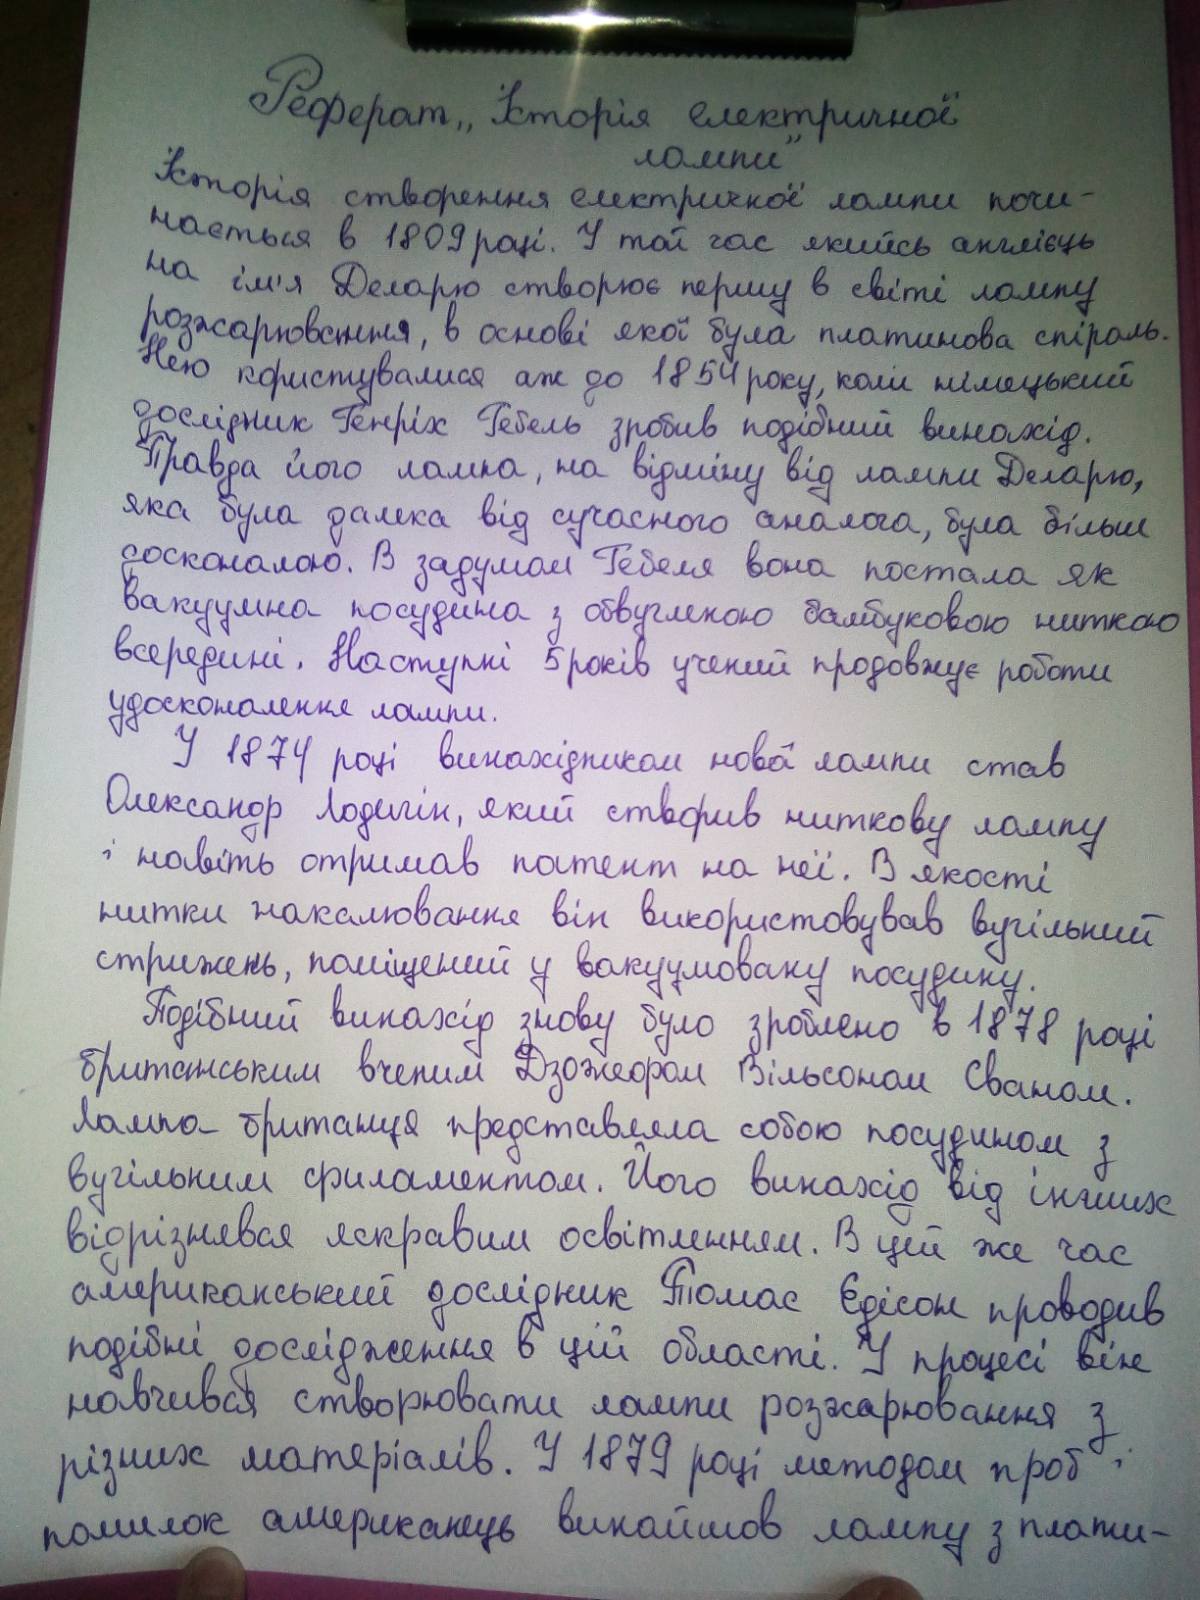 Реферат „Історія електричної
лампи"
Історія створення електричної лампи почи-
нається в 1809 році. У той час якийсь англієць
на ім'я Деларю створює першу в світі лампу
розжарювання, в основі якої була платинова спіраль.
Нею користувалися аж до 1854 року, коли німецький
дослідник Генріх Гебель зробив подібний винахід.
Правда його лампа, на відміну від лампи Деларю,
яка була далека від сучасного аналога, була більш
досконалою. В задумом Гебеля вона постала як
вакуумна посудина з обвугленою бамбуковою ниткою
всередині. Наступні 5 років учений продовжує роботи
удосконалення лампи.
У 1874 році винахідником нової лампи став
Олександр Лодигін, який створив ниткову лампу
і навіть отримав патент на неї. В якості
нитки накалювання він використовував вугільний
стрижень, поміщений у вакуумовану посудину.
Подібний винахід знову було зроблено в 1878 році
британським вченим Дзожефом Вільсоном Сваном.
Лампа британця представляла собою посудином з
вугільним филаментом. Його винахід від інших
відрізнявся яскравим освітленням. В цей же час
американський дослідник Томас Едісон проводив
подібні дослідження в цій області. У процесі він
навчився створювати лампи розжарювання з
різних матеріалів. У 1879 році методом проб і
помилок американець винайшов лампу з плати-